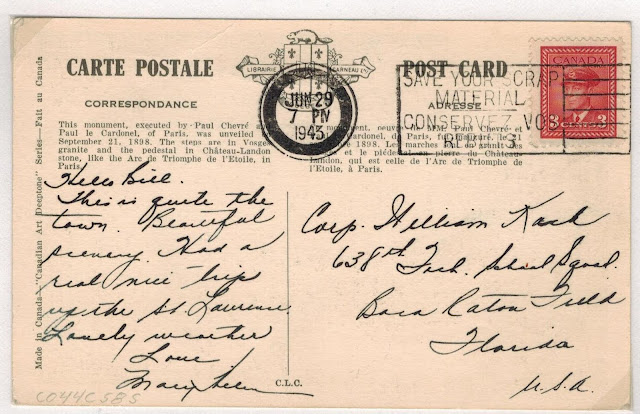 CARTE POSTALE
POST CARD
LIBRAIRIE GARNEAU LTÉE
CORRESPONDANCE
ADRESSE
This monument, executed by Paul Chevré and
Paul le Cardonel, of Paris, was unveiled
September 21, 1898. The steps are in Vosges
granite and the pedestal in Château-Landon
stone, like the Arc de Triomphe de l'Etoile, in
Paris.
monument, oeuvre de MM. Paul Chevré et
Cardonel, de Paris, fut
1898. Les marches sont en granit des
et le piédestal en pierre du Château-
Landon, qui est celle de l'Arc de Triomphe de
l'Etoile, à Paris.
JUN 29
7 PM
1943
SAVE YOUR SCRAP
MATERIAL
CONSERVEZ VOS
REBUTS
CANADA
3 CENTS 3
Hello Bill.
This is quite the
town. Beautiful
scenery. Had a
real nice trip
up the St Lawrence
Lovely weather
Love
Mary Helen
Corp. William Kash
638th Tech. School Sqod.
Boca Raton Field
Florida
U.S.A.
C.L.C.
Made in Canada—"Canadian Art Deeptone" Series—Fait au Canada
CO44C58S